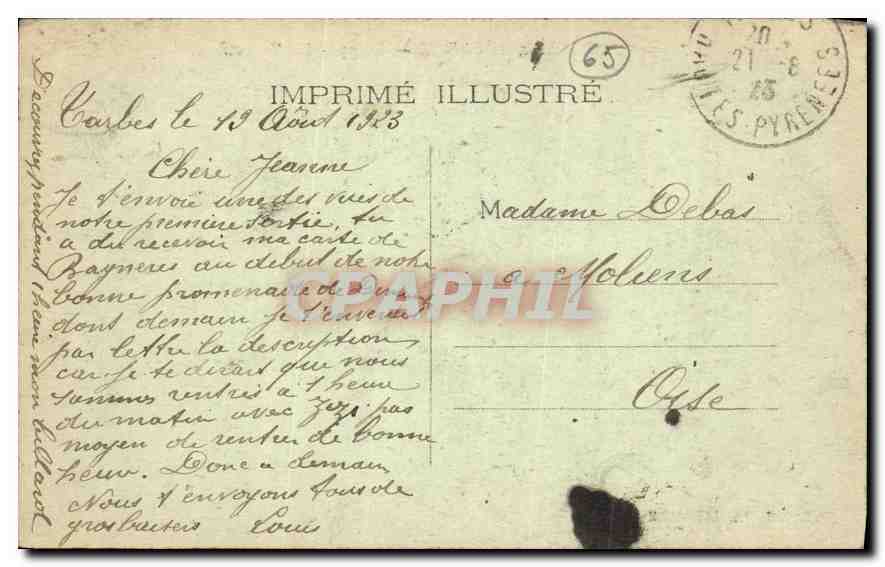 65
20
21 -8
23
TES-PYRENEES
IMPRIMÉ ILLUSTRÉ
Tarbes le 19 Août 1923
Chère Jeanne
Je t'envoie une des vues de
notre première sortie, tu
a du recevoir ma carte de
Bagneres au debut de notre
bonne promenade de
dont demain je t'enverrai
par lettre la description
car je te dirait que nous
sommes rentrés à 1 heure
du matin avec Zizi pas
moyen de rentrer de bonne
heure. Donc a demain
Nous t'envoyons tous de
gros baisers Louis
Madame Debas
a Moliens
Oise
pendant 1 heure mon
CPAPHIL